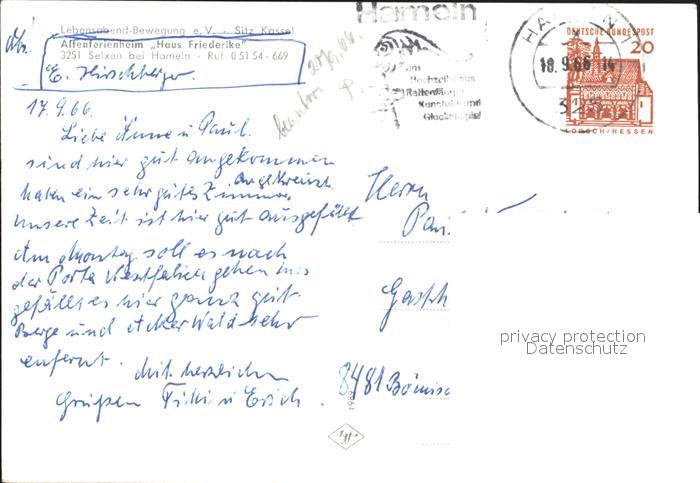 Lebensabend-Bewegung e. V. Sitz Kassel
Abs.
Altenferienheim „Haus Friederike"
3251 Selxen bei Hameln - Ruf 0 51 54 - 669
E. Hirschberger
17.9.66.
Liebe Änne u Paul.
sind hier gut angekommen
haben ein sehr gutes Zimmer
angekreuzt
unsere Zeit ist hier gut ausgefüllt
Am Montag soll es nach
der Porta Westfalica gehen uns
gefällt es hier ganz gut.
Berge und Wald sehr
entfernt. Mit herzlichen
Grüßen u Erich.
Hameln
Rattenfänger
Kunstuhr und
Glockenspiel
HAMELN 1
18.9.66-14
325
DEUTSCHE BUNDESPOST
20
LORSCH/HESSEN
Herrn
Pau
Gasth
8481 Bömisc
privacy protection
Datenschutz